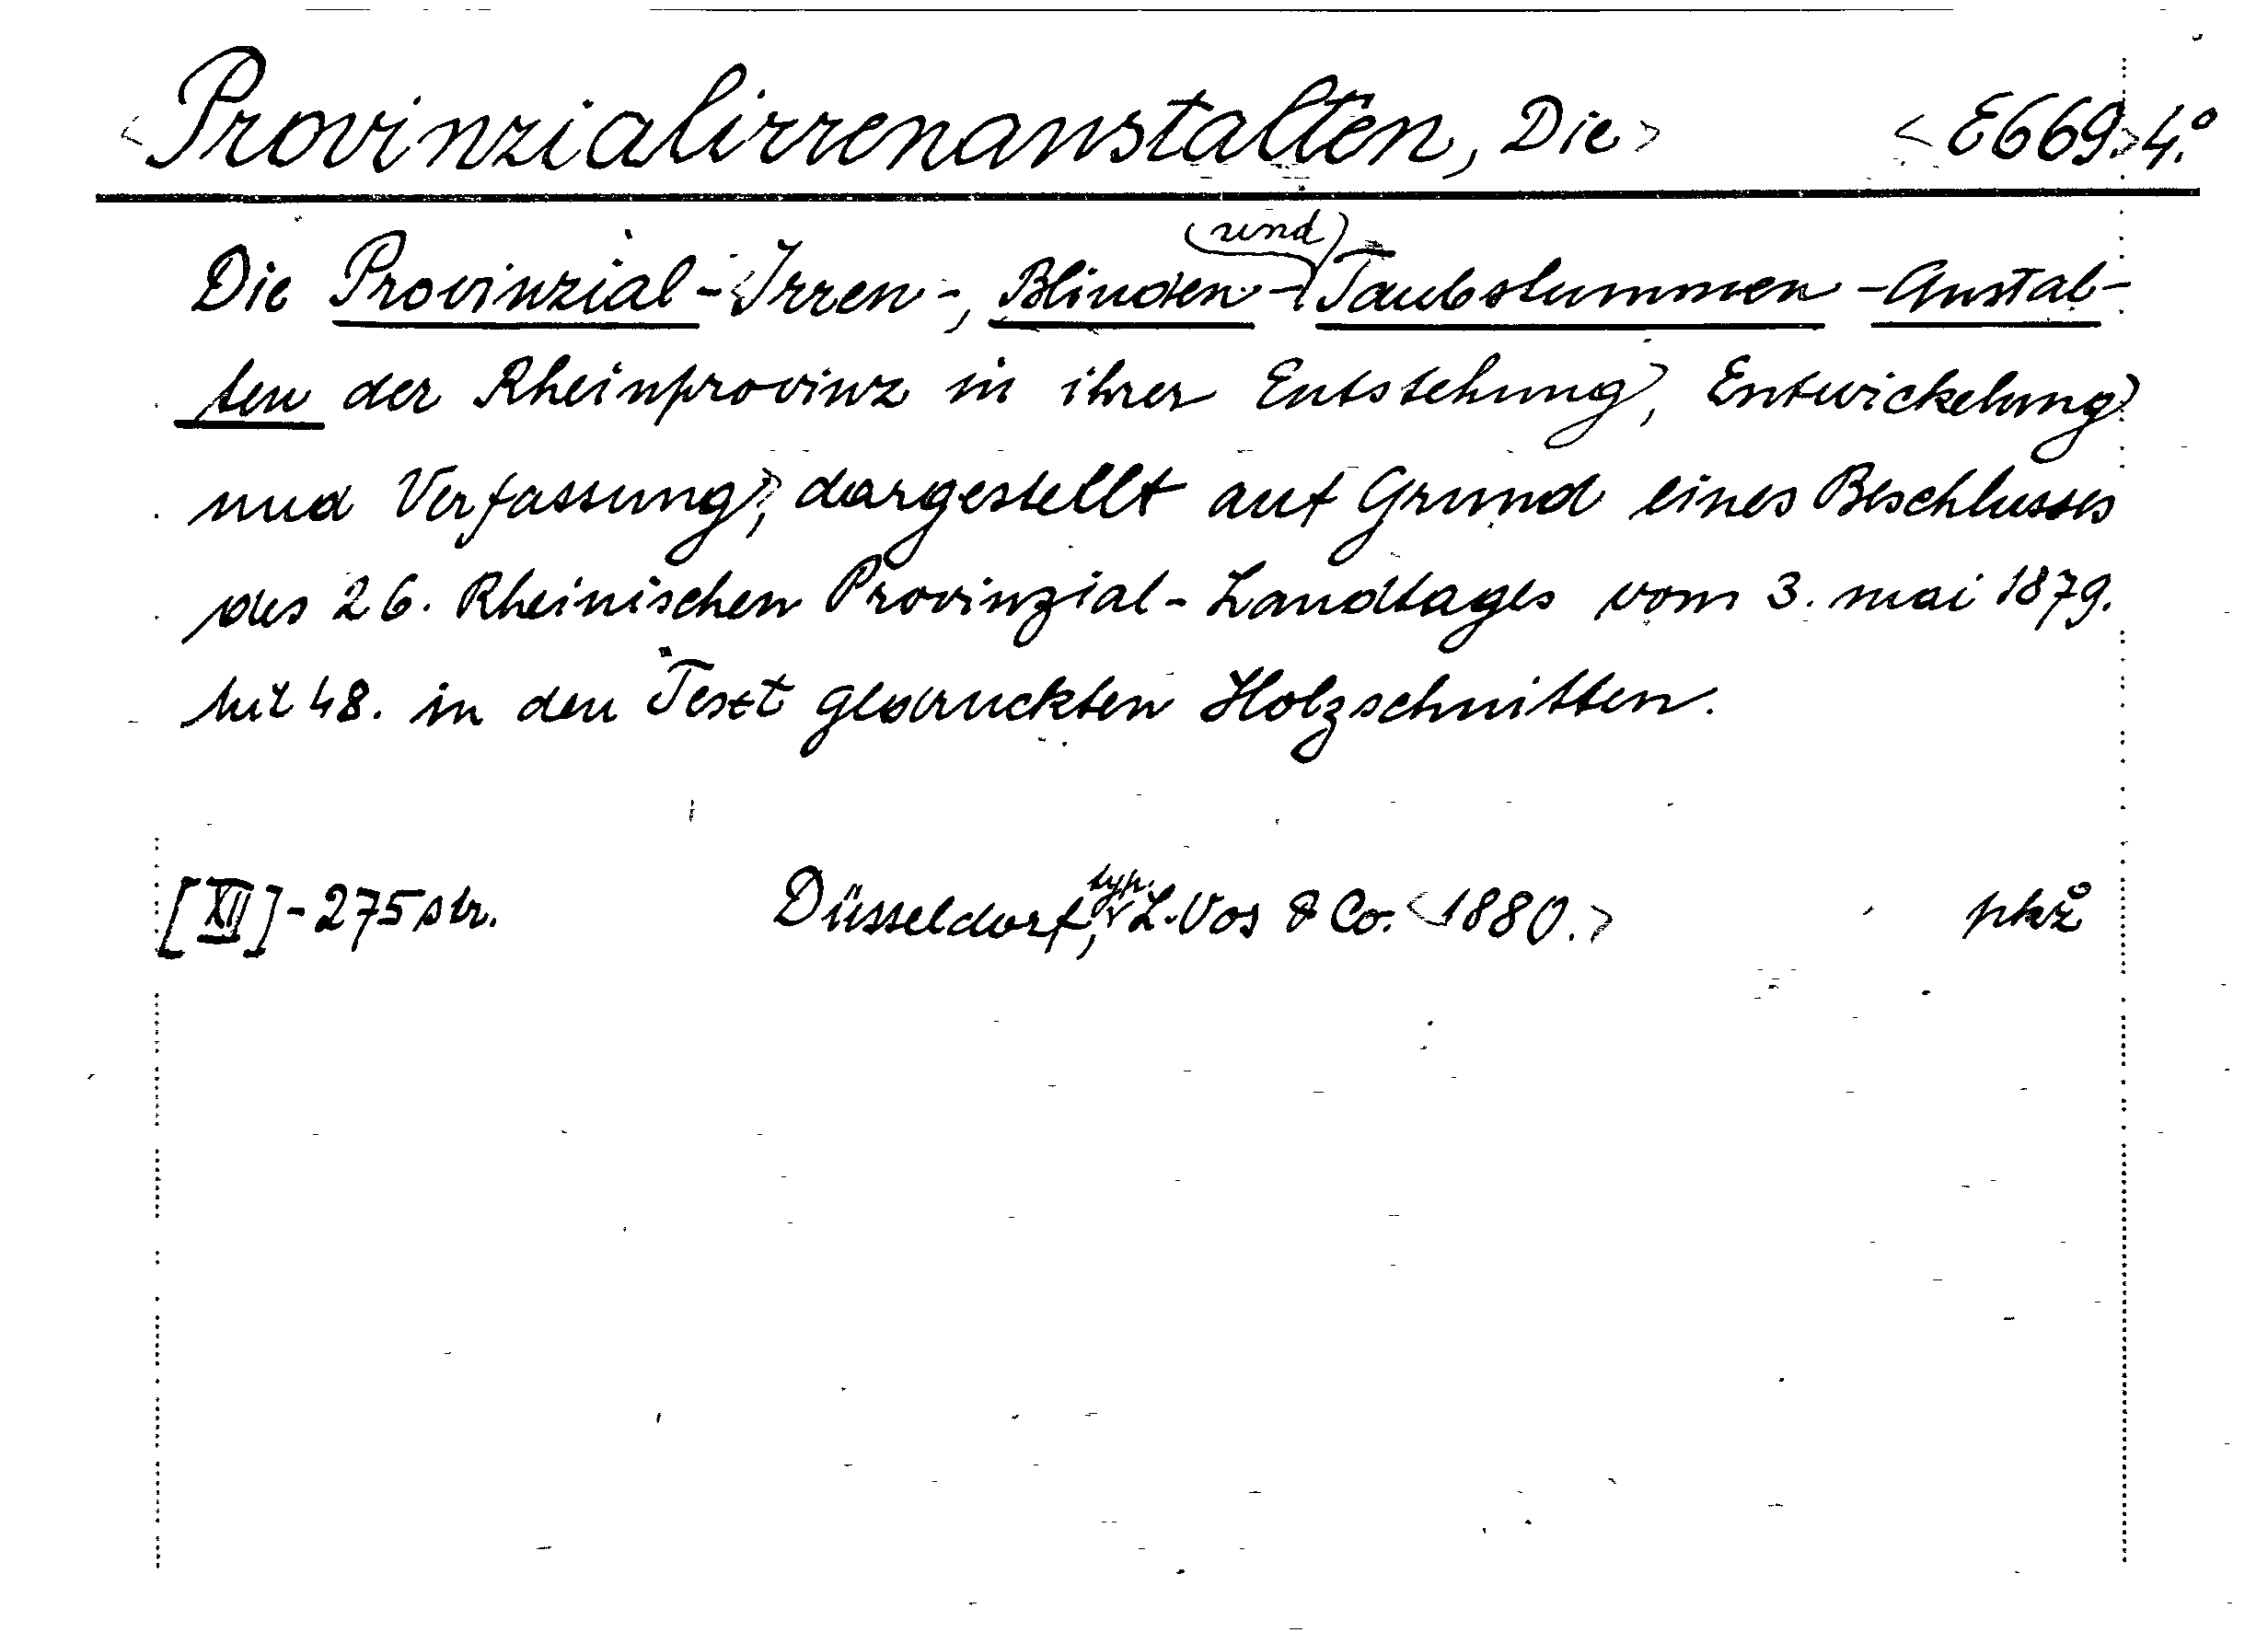 <Provinzialirrenanstalten, Die> <E669>4.°
Die Provinzial-Irren-, Blinden- (und) Taubstummen-Anstal-
ten der Rheinprovinz in ihrer Entstehung, Entwickelung
und Verfassung, dargestellt auf Grund eines Beschlusses
des 26. Rheinischen Provinzial-Landtages vom 3. mai 1879.
Mit 48. in den Text gedruckten Holzschnitten.
[XII]-275 str. Düsseldorf, typ. L. Vos & Co. <1880.>